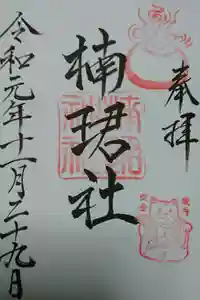 奉拝
楠珺社
令和元年十一月二十九日